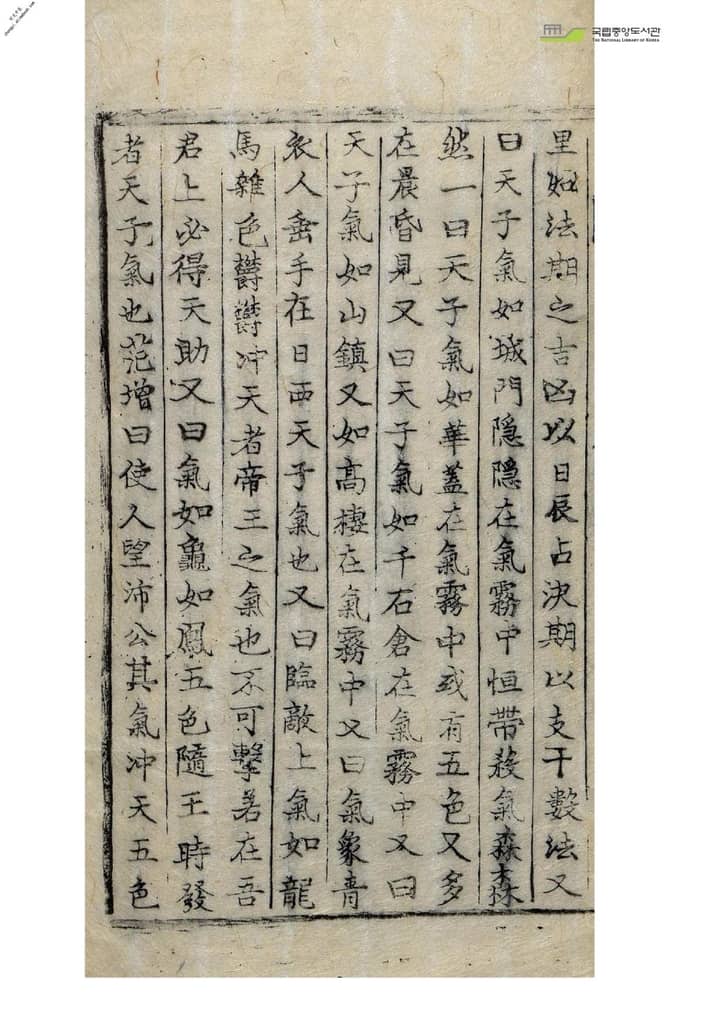 里如法期之吉凶以日辰占決期以支干數法又
曰天子氣如城門隐隐在氣霧中恒帶殺氣森森
然一曰天子氣如華蓋在氣霧中或有五色又多
在晨昏見又曰天子氣如千石倉在氣霧中又曰
天子氣如山鎮又如高樓在氣霧中又曰氣象青
衣人垂手在日西天子氣也又曰臨敵上氣如龍
馬雜色欝欝冲天者帝王之氣也不可擊若在吾
君上必得天助又曰氣如龜如鳳五色隨王時發
者天子氣也范增曰使人望沛公其氣冲天五色
국립중앙도서관
THE NATIONAL LIBRARY OF KOREA